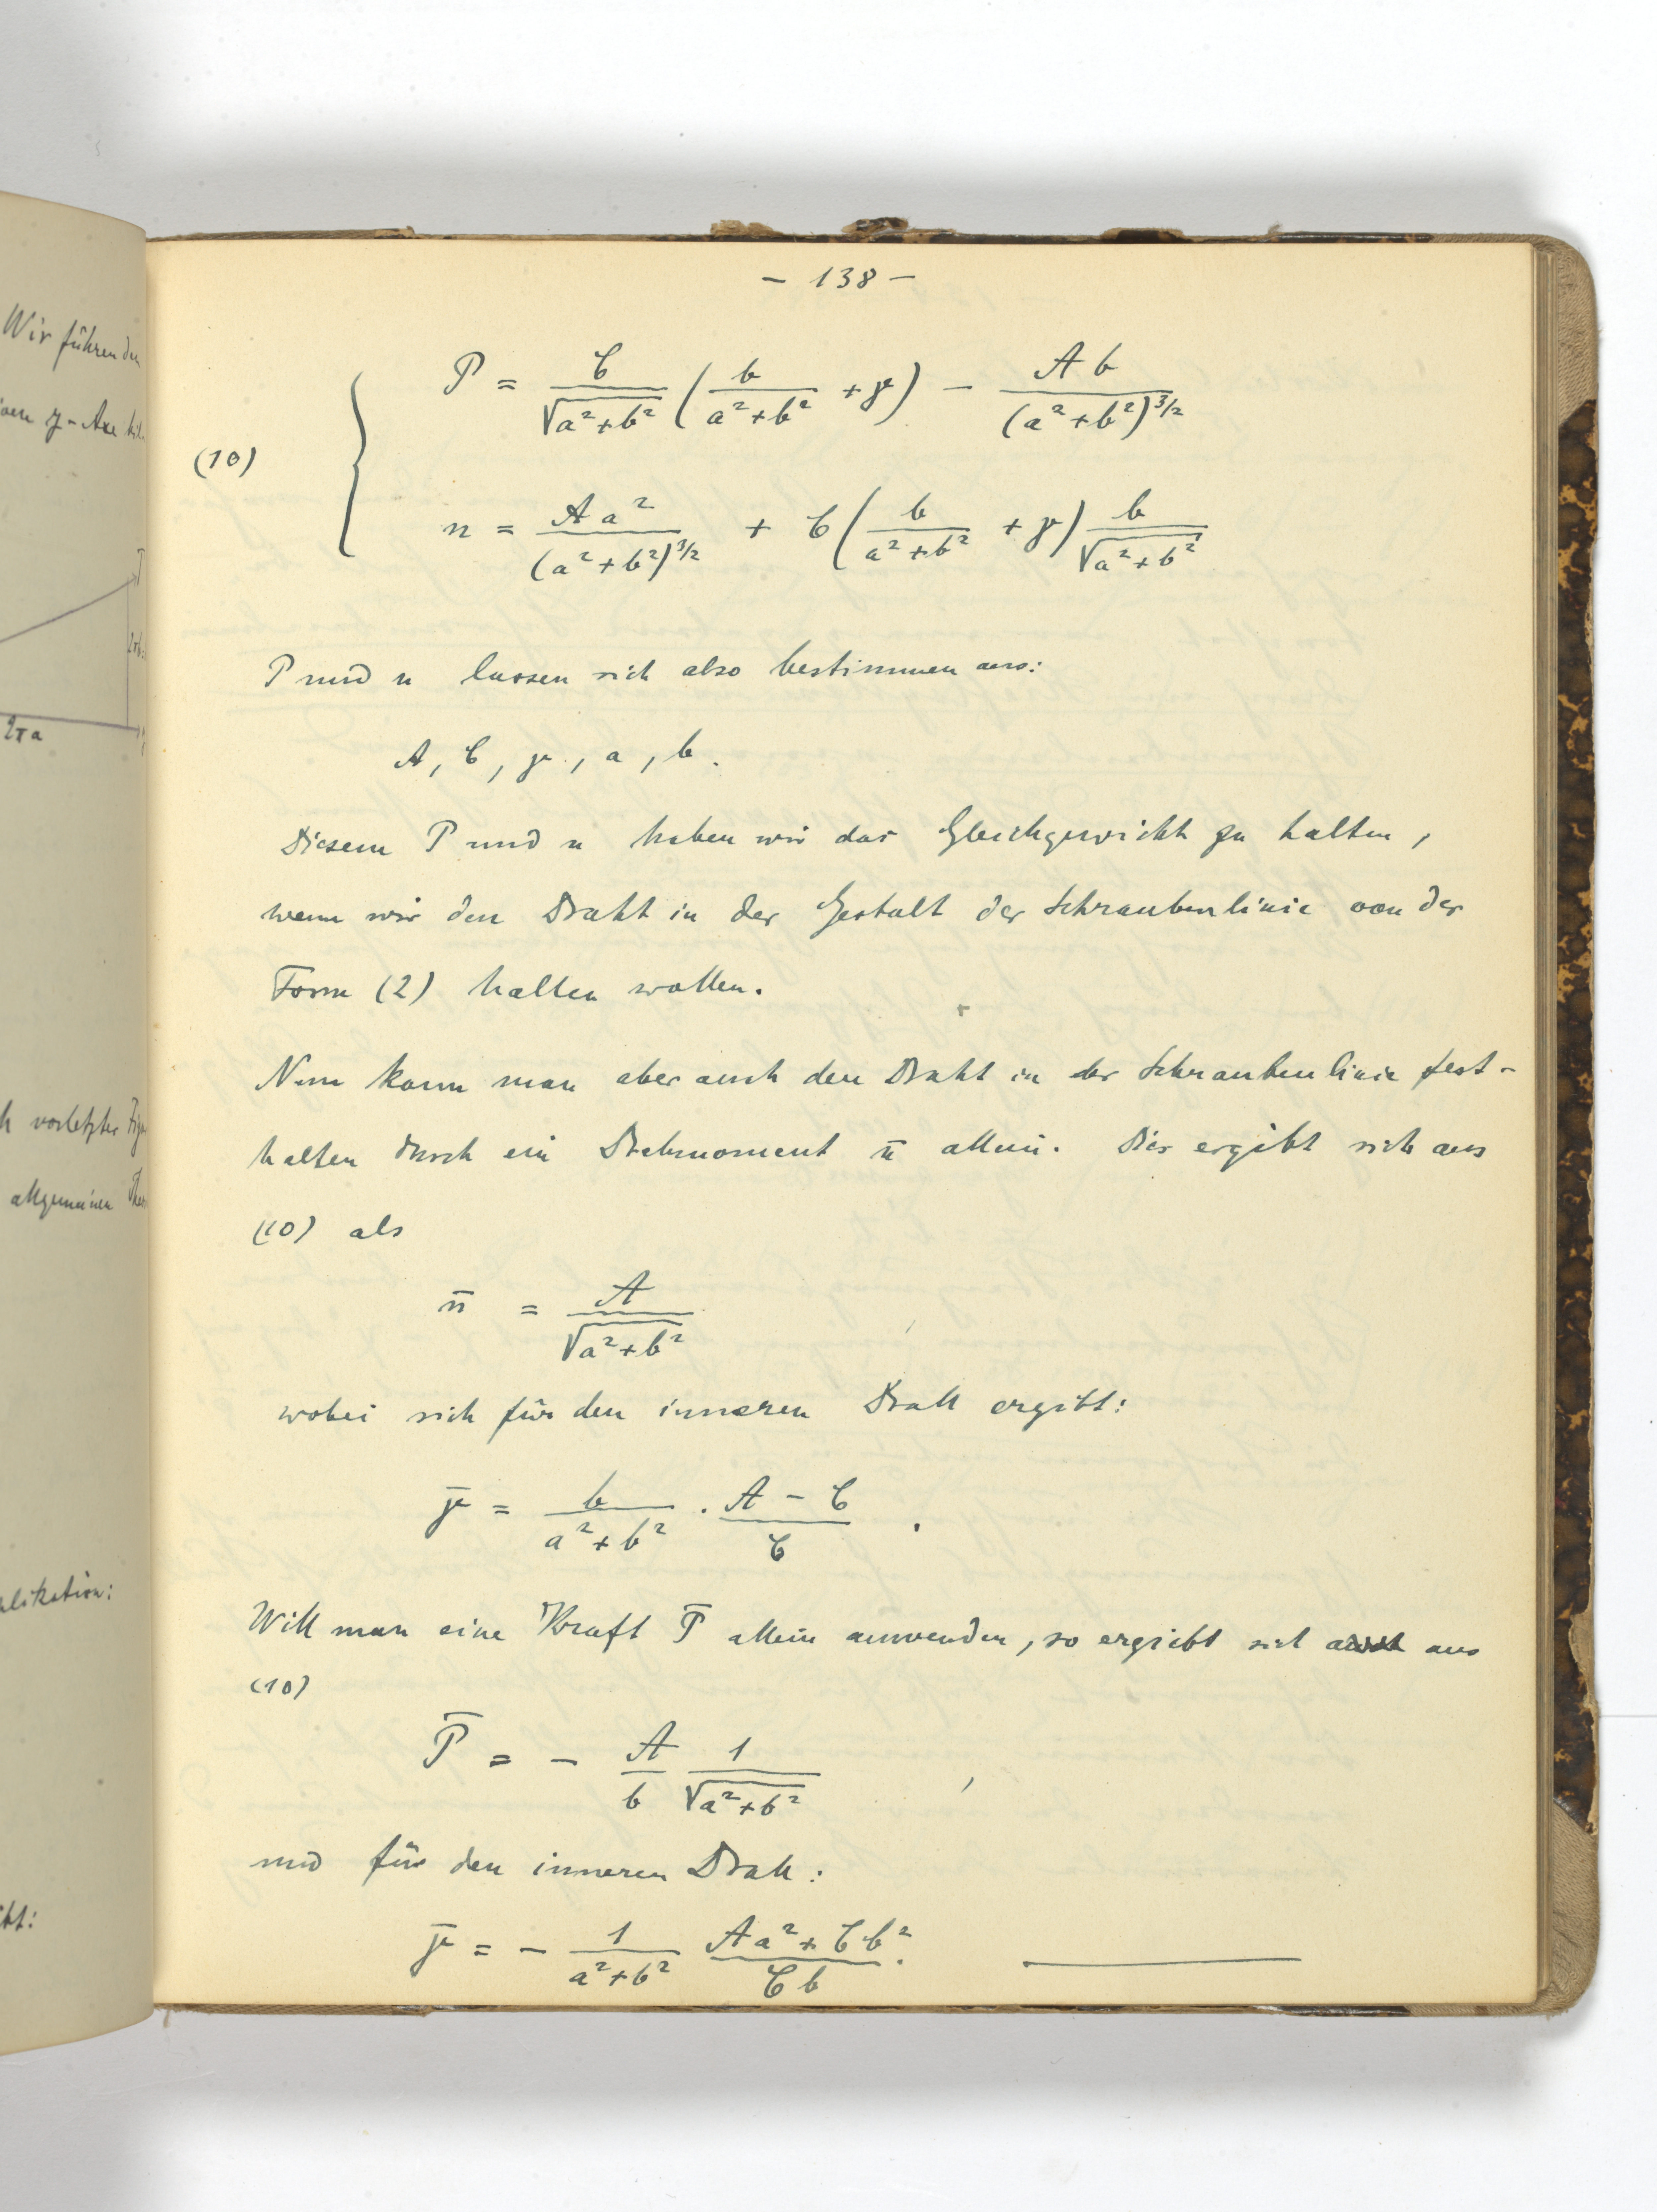 Wir führen den
2πa
h vorletzter
allgemeinen
- 138 -
(10)
P = C/√(a²+b²) (b/(a²+b²) + γ) - A b/(a²+b²)^(3/2)
n = A a²/(a²+b²)^(3/2) + C (b/(a²+b²) + γ) b/√(a²+b²)
P und n lassen sich also bestimmen aus:
A, C, γ, a, b.
Diesem P und n haben wir das Gleichgewicht zu halten,
wenn wir den Draht in der Gestalt der Schraubenlinie von der
Form (2) halten wollen.
Nun kann man aber auch den Draht in der Schraubenlinie fest-
halten durch ein Drehmoment n̄ allein. Dies ergibt sich aus
(10) als
n̄ = A/√(a²+b²)
wobei sich für den inneren Drall ergibt:
γ̄ = b/(a²+b²) · (A - C)/C .
Will man eine Kraft P̄ allein anwenden, so ergiebt sich aus
(10)
P̄ = - A/b 1/√(a²+b²) ,
und für den inneren Drall:
γ̄ = - 1/(a²+b²) (A a² + C b²)/(C b).